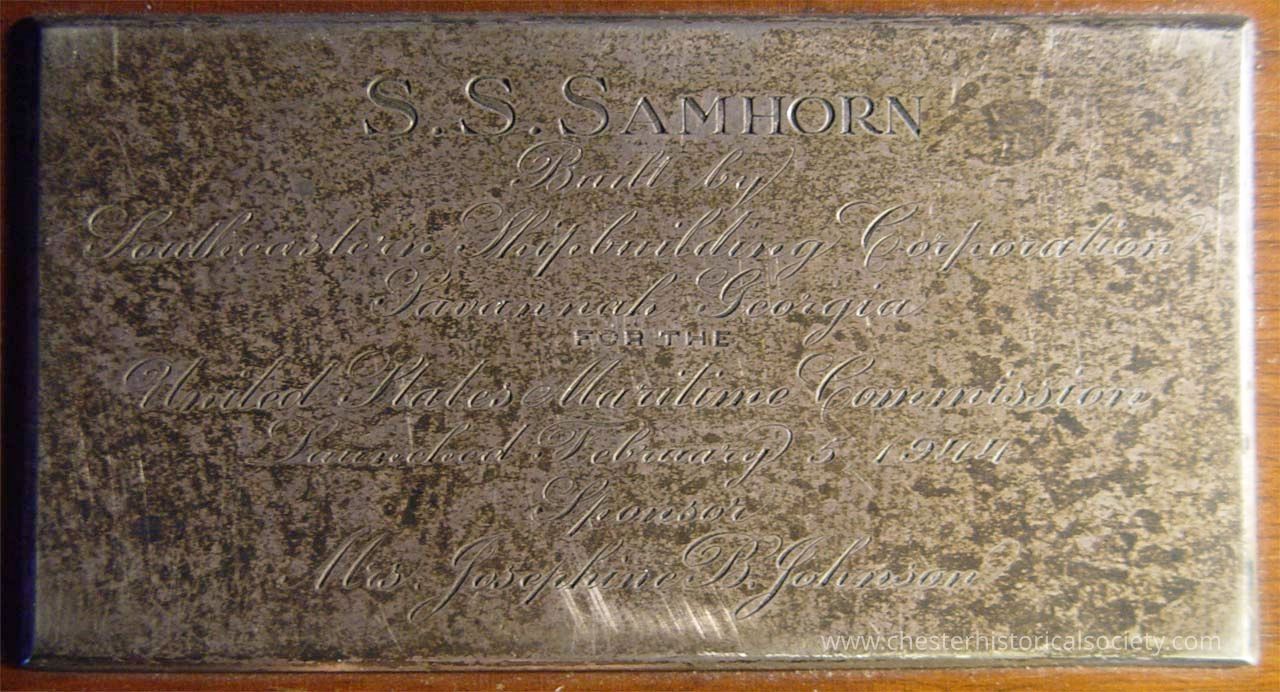 S.S. SAMHORN
Built by
Southeastern Shipbuilding Corporation
Savannah Georgia
FOR THE
United States Maritime Commission
Launched February 5 1944
Sponsor
Mrs. Josephine B. Johnson
www.chesterhistoricalsociety.com